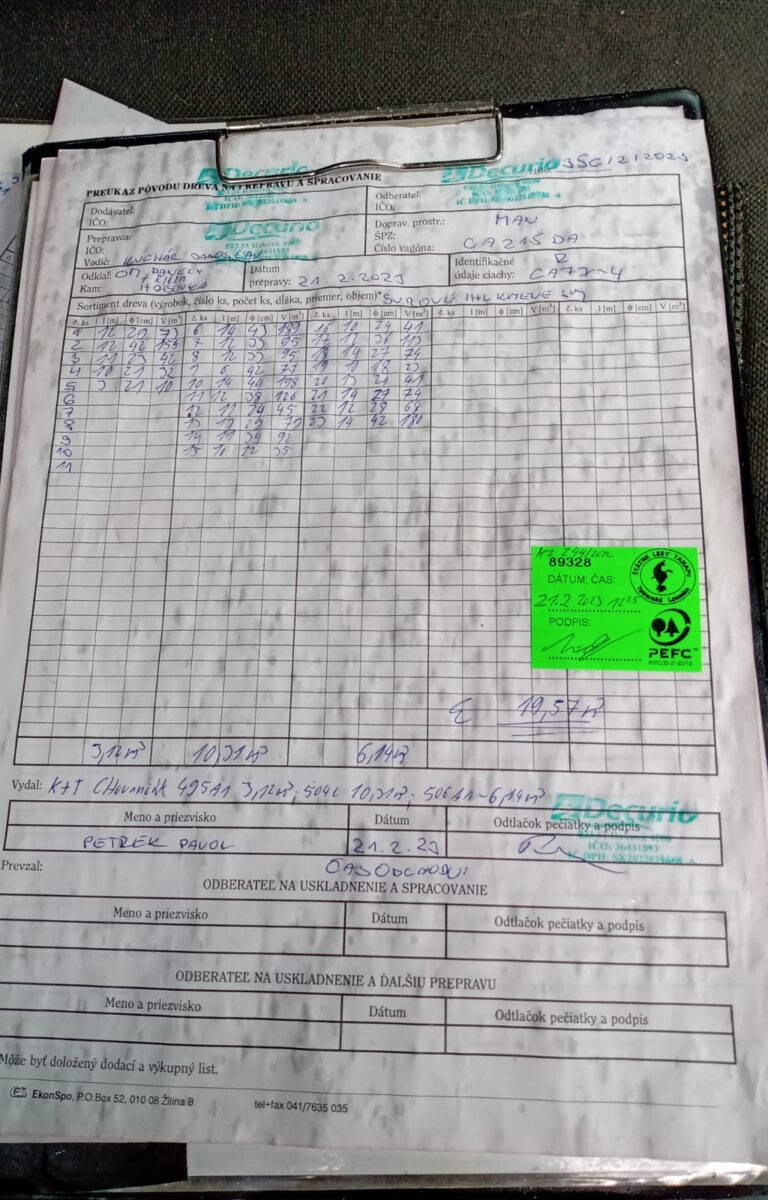 Decurio
Decurio
Číslo: 356/2/2023
PREUKAZ PÔVODU DREVA NA PREPRAVU A SPRACOVANIE
Dodávateľ:
IČO:
Odberateľ:
IČO:
Decurio
Prepravca:
IČO:
Vodič: KUCHÁR
Doprav. prostr.: MAN
ŠPZ:
Číslo vagóna: CA215DA
Odkiaľ: OM
Kam:
Dátum
prepravy: 21.2.2023
Identifikačné
údaje ciachy: CA77-4
Sortiment dreva (výrobok, číslo ks, počet ks, dĺžka, priemer, objem)* SUROVÉ IHL KMEŇE
č. ks l [m] ϕ [cm] V [m³] č. ks l [m] ϕ [cm] V [m³] č. ks l [m] ϕ [cm] V [m³] č. ks l [m] ϕ [cm] V [m³] č. ks l [m] ϕ [cm] V [m³]
1 12 29 73 6 14 43 189 16 10 24 41
2 12 42 154 7 12 33 95 17 12 36 113
3 11 23 42 8 12 33 95 18 14 27 74
4 10 21 32 9 6 42 77 19 10 18 23
5 3 21 10 10 14 44 198 20 13 21 41
6 11 12 38 126 21 14 27 74
7 12 11 24 45 22 12 28 68
8 13 12 29 72 23 14 42 180
9 14 11 34 92
10 15 10 22 35
11
89328
DÁTUM; ČAS:
21.2.2023 12 25
PODPIS:
ŠTÁTNE LESY TANAPu
Tatranská Lomnica
PEFC™
Σ 19,57m³
3,12m³ 10,31m³ 6,14m³
Vydal: K+T 495A1 3,12m³; 504C 10,31m³; 506A1-6,14m³
Decurio
Meno a priezvisko Dátum Odtlačok pečiatky a podpis
PETREK PAVOL 21.2.23
IČO: 36451893
Prevzal: ČAS ODCHODU:
ODBERATEĽ NA USKLADNENIE A SPRACOVANIE
Meno a priezvisko Dátum Odtlačok pečiatky a podpis
ODBERATEĽ NA USKLADNENIE A ĎALŠIU PREPRAVU
Meno a priezvisko Dátum Odtlačok pečiatky a podpis
Môže byť doložený dodací a výkupný list.
ES EkonSpo, P.O.Box 52, 010 08 Žilina 8 tel+fax 041/7635 035